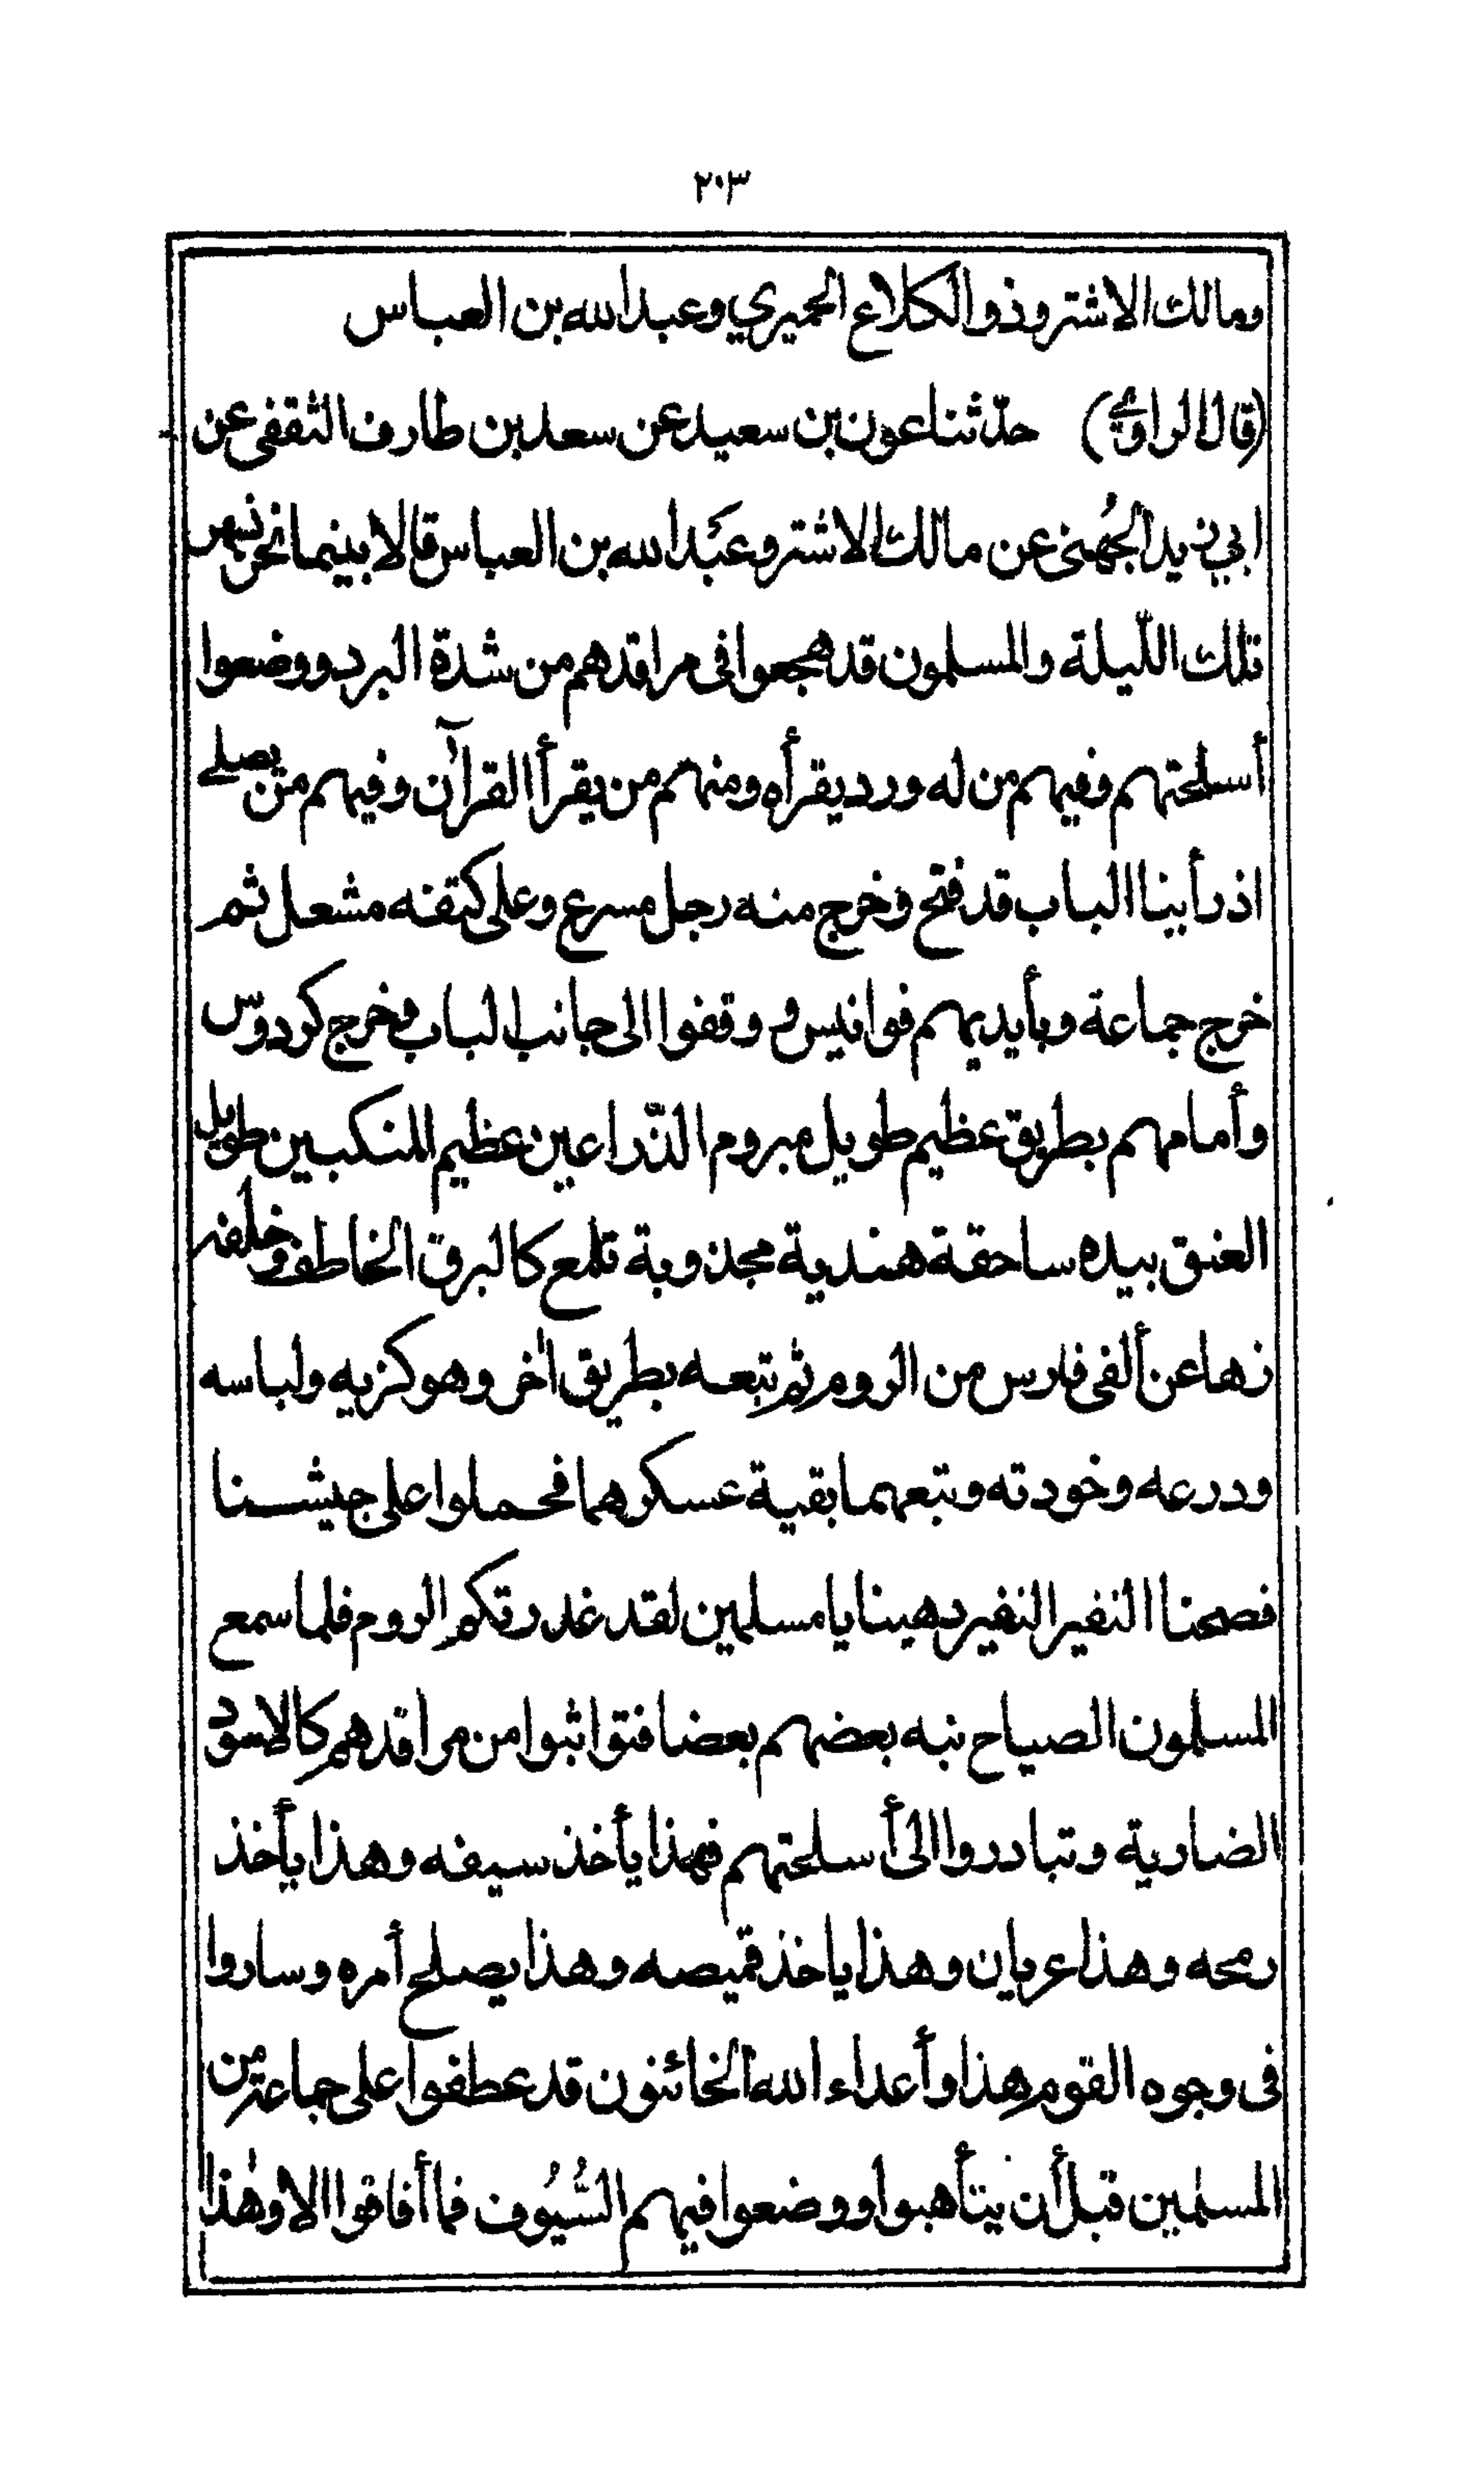 ٢٠٣
ومالك الاشتر وذو الكلاع الحميري وعبد الله بن العباس
(قال الراوي) حدّثنا عون بن سعيد عن سعد بن طارف الثقفى عن
ابي زيد الجُهنى عن مالك الاشتر وعَبد الله بن العباس قالا بينما نحن نسهر
تلك اللّيلة والمسلمون قد هجعوا فى مراقدهم من شدة البرد ووضعوا
أسلحتهم وفيهم من له ورد يقرأه ومنهم من يقرأ القرآن وفيهم من يصلي
اذ رأينا الباب قد فتح وخرج منه رجل مسرع وعلى كتفه مشعل ثم
خرج جماعة وبأيديهم فوانيس و وقفوا الى جانب الباب وخرج كردوس
وأمامهم بطريق عظيم طويل مبروم الذّراعين عظيم المنكبين طويل
العنق بيده ساحقة هندية مجذوبة تلمع كالبرق الخاطف وخلفه
زها عن ألفى فارس من الروم ثم تبعه بطريق اٰخر وهو كزيه ولباسه
ودرعه وخودته وتبعهما بقية عسكرهما فحملوا على جيشنا
فصحنا النفير النفير دهينا يا مسلمين لقد غدرتكم الروم فلما سمع
المسلمون الصياح نبه بعضهم بعضا فتواثبوا من مراقدهم كالاسود
الضارية وتبادروا الى أسلحتهم فهذا يأخذ سيفه وهذا يأخذ
رمحه وهذا عريان وهذا ياخذ قميصه وهذا يصلح أمره وساروا
فى وجوه القوم هذا وأعداء الله الخائنون قد عطفوا على جماعة من
المسلمين قبل أن يتأهبوا ووضعوا فيهم السُّيُوف فما أفاقوا الا وهٰذا